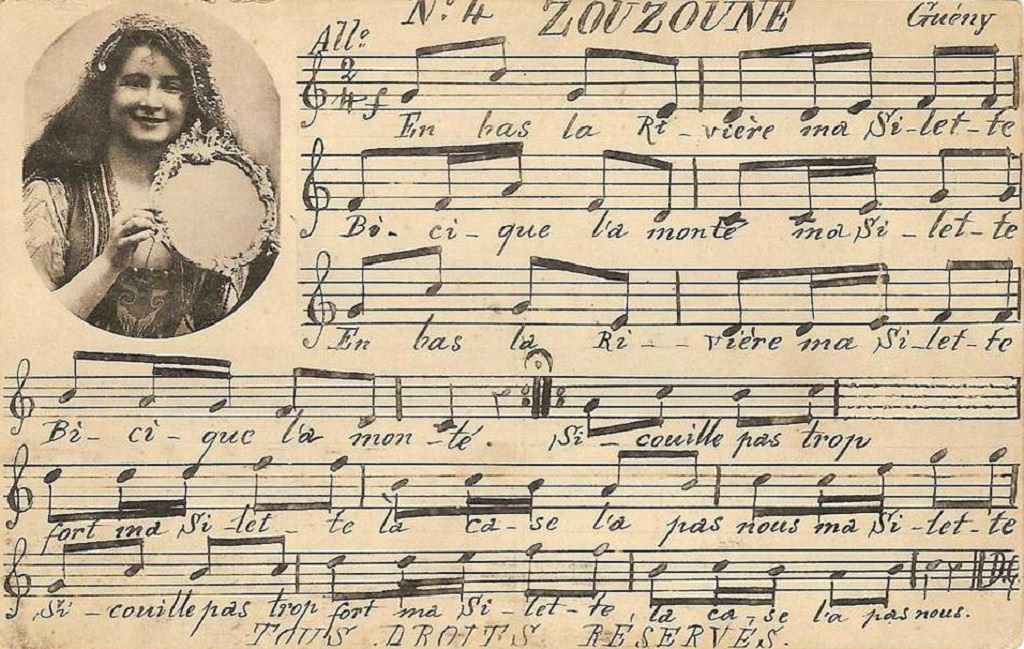 N.º 4 ZOUZOUNE Guény
All.º
2 4 f
En bas la Ri - vière ma Si - let - te
Bi - ci - que l'a monté ma Si - let - te
En bas la Ri - - vière ma Si - let - te
Bi - ci - que l'a mon - té. Si - couille pas trop
fort ma Si - let - te la ca - se l'a pas nous ma Si - let - te
Si - couille pas trop fort ma Si - let - te, la ca - se l'a pas nous.
D.C.
TOUS DROITS RÉSERVÉS.